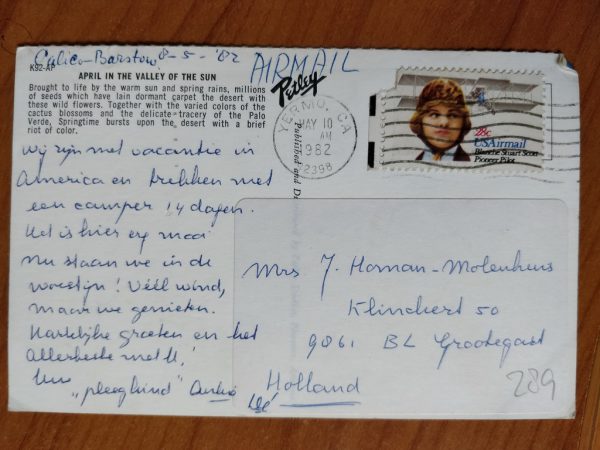 Calico-Barstow 8-5-'82
AIRMAIL
K92-AP
APRIL IN THE VALLEY OF THE SUN
Brought to life by the warm sun and spring rains, millions
of seeds which have lain dormant carpet the desert with
these wild flowers. Together with the varied colors of the
cactus blossoms and the delicate tracery of the Palo
Verde, Springtime bursts upon the desert with a brief
riot of color.
Petley
Published and
YERMO, CA
MAY 10
AM
1982
92398
28c
USAirmail
Blanche Stuart Scott
Pioneer Pilot
Wij zijn met vacantie in
America en trekken met
een camper 14 dagen.
Het is hier erg mooi
nu staan we in de
woestijn! Véél wind,
maar we genieten.
Hartelijke groeten en het
allerbeste met U,
Uw
„pleegkind"
Mrs J. Homan-Molenhuis
Klinckert 50
9861 BL Grootegast
Holland
289